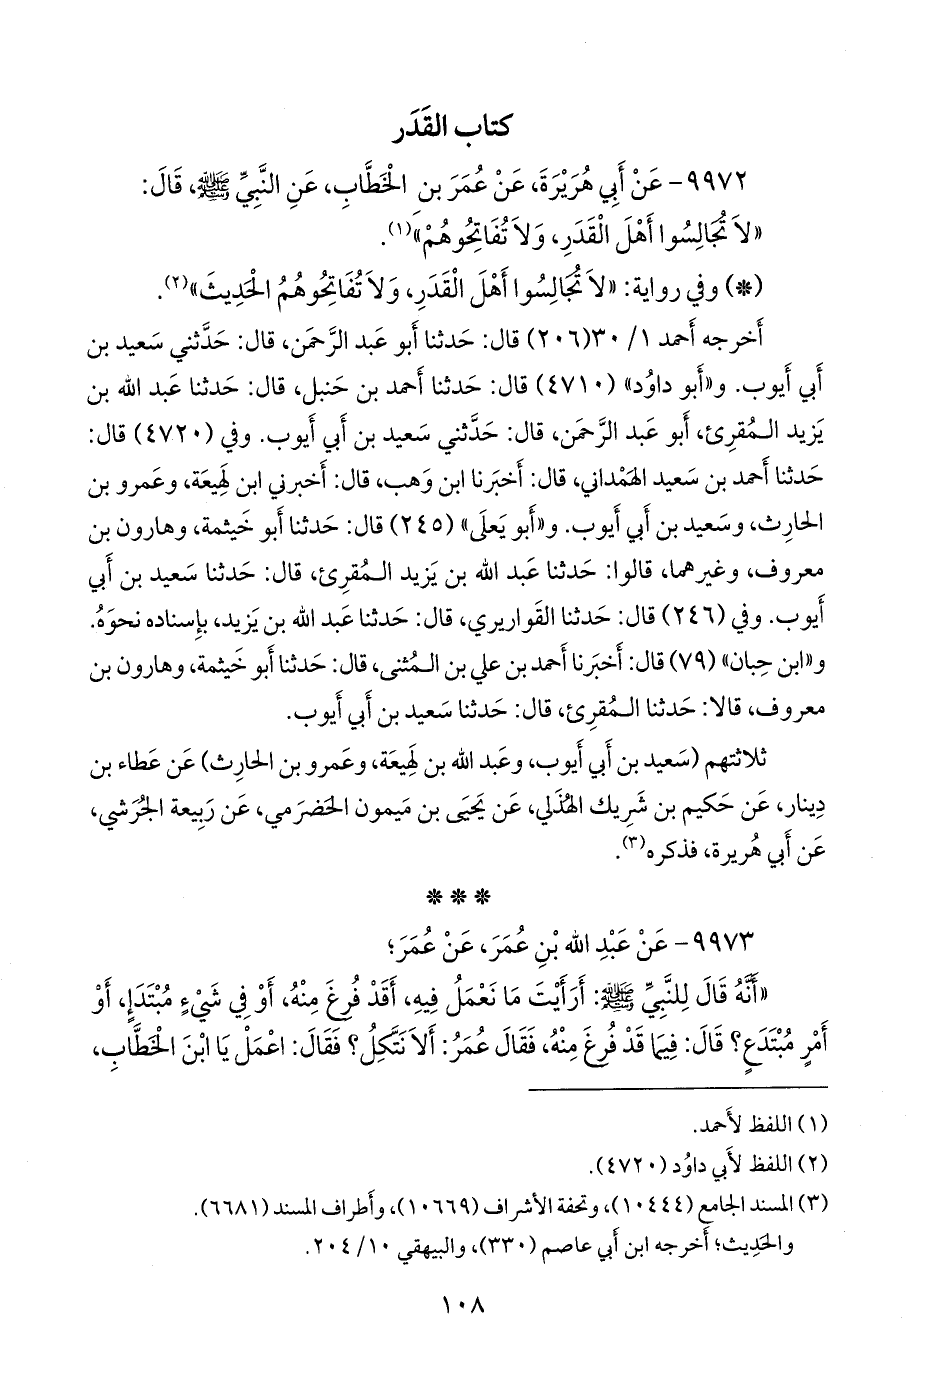 كتاب القَدَر
٩٩٧٢- عَنْ أَبِي هُرَيْرَةَ، عَنْ عُمَرَ بنِ الْخَطَّابِ، عَنِ النَّبِيِّ ﷺ، قَالَ:
«لاَ تُجَالِسُوا أَهْلَ الْقَدَرِ، وَلاَ تُفَاتِحُوهُمْ»(١).
(*) وفي رواية: «لاَ تُجَالِسُوا أَهْلَ الْقَدَرِ، وَلاَ تُفَاتِحُوهُمُ الْحَدِيثَ»(٢).
أَخرجه أَحمد ١/ ٣٠(٢٠٦) قال: حَدثنا أَبو عَبد الرَّحمَن، قال: حَدَّثني سَعيد بن
أَبي أَيوب. و«أَبو داوُد» (٤٧١٠) قال: حَدثنا أَحمد بن حَنبل، قال: حَدثنا عَبد الله بن
يَزيد الـمُقرِئ، أَبو عَبد الرَّحمَن، قال: حَدَّثني سَعيد بن أَبي أَيوب. وفي (٤٧٢٠) قال:
حَدثنا أَحمد بن سَعيد الهَمْداني، قال: أَخبَرنا ابن وَهب، قال: أَخبرني ابن لَهِيعَة، وعَمرو بن
الحارِث، وسَعيد بن أَبي أَيوب. و«أَبو يَعلَى» (٢٤٥) قال: حَدثنا أَبو خَيثمة، وهارون بن
معروف، وغيرهما، قالوا: حَدثنا عَبد الله بن يَزيد الـمُقرِئ، قال: حَدثنا سَعيد بن أَبي
أَيوب. وفي (٢٤٦) قال: حَدثنا القَواريري، قال: حَدثنا عَبد الله بن يَزيد، بإِسناده نحوَهُ.
و«ابن حِبان» (٧٩) قال: أَخبَرنا أَحمد بن علي بن الـمُثنى، قال: حَدثنا أَبو خَيثمة، وهارون بن
معروف، قالا: حَدثنا الـمُقرِئ، قال: حَدثنا سَعيد بن أَبي أَيوب.
ثلاثتهم (سَعيد بن أَبي أَيوب، وعَبد الله بن لَهِيعَة، وعَمرو بن الحارِث) عَن عَطاء بن
دِينار، عَن حَكيم بن شَرِيك الهُذَلي، عَن يَحيَى بن مَيمون الحَضرَمي، عَن رَبِيعة الجُرَشي،
عَن أَبي هُريرة، فذكره(٣).
* * *
٩٩٧٣- عَنْ عَبْدِ الله بْنِ عُمَرَ، عَنْ عُمَرَ؛
«أَنَّهُ قَالَ لِلنَّبِيِّ ﷺ: أَرَأَيْتَ مَا نَعْمَلُ فِيهِ، أَقَدْ فُرِغَ مِنْهُ، أَوْ فِي شَيْءٍ مُبْتَدَإٍ، أَوْ
أَمْرٍ مُبْتَدَعٍ؟ قَالَ: فِيمَا قَدْ فُرِغَ مِنْهُ، فَقَالَ عُمَرُ: أَلاَ نَتَّكِلُ؟ فَقَالَ: اعْمَلْ يَا ابْنَ الْخَطَّابِ،
(١) اللفظ لأَحمد.
(٢) اللفظ لأَبي داوُد (٤٧٢٠).
(٣) المسند الجامع (١٠٤٤٤)، وتحفة الأشراف (١٠٦٦٩)، وأَطراف المسند (٦٦٨١).
والحَدِيث؛ أَخرجه ابن أَبي عاصم (٣٣٠)، والبيهقي ١٠/ ٢٠٤.
١٠٨